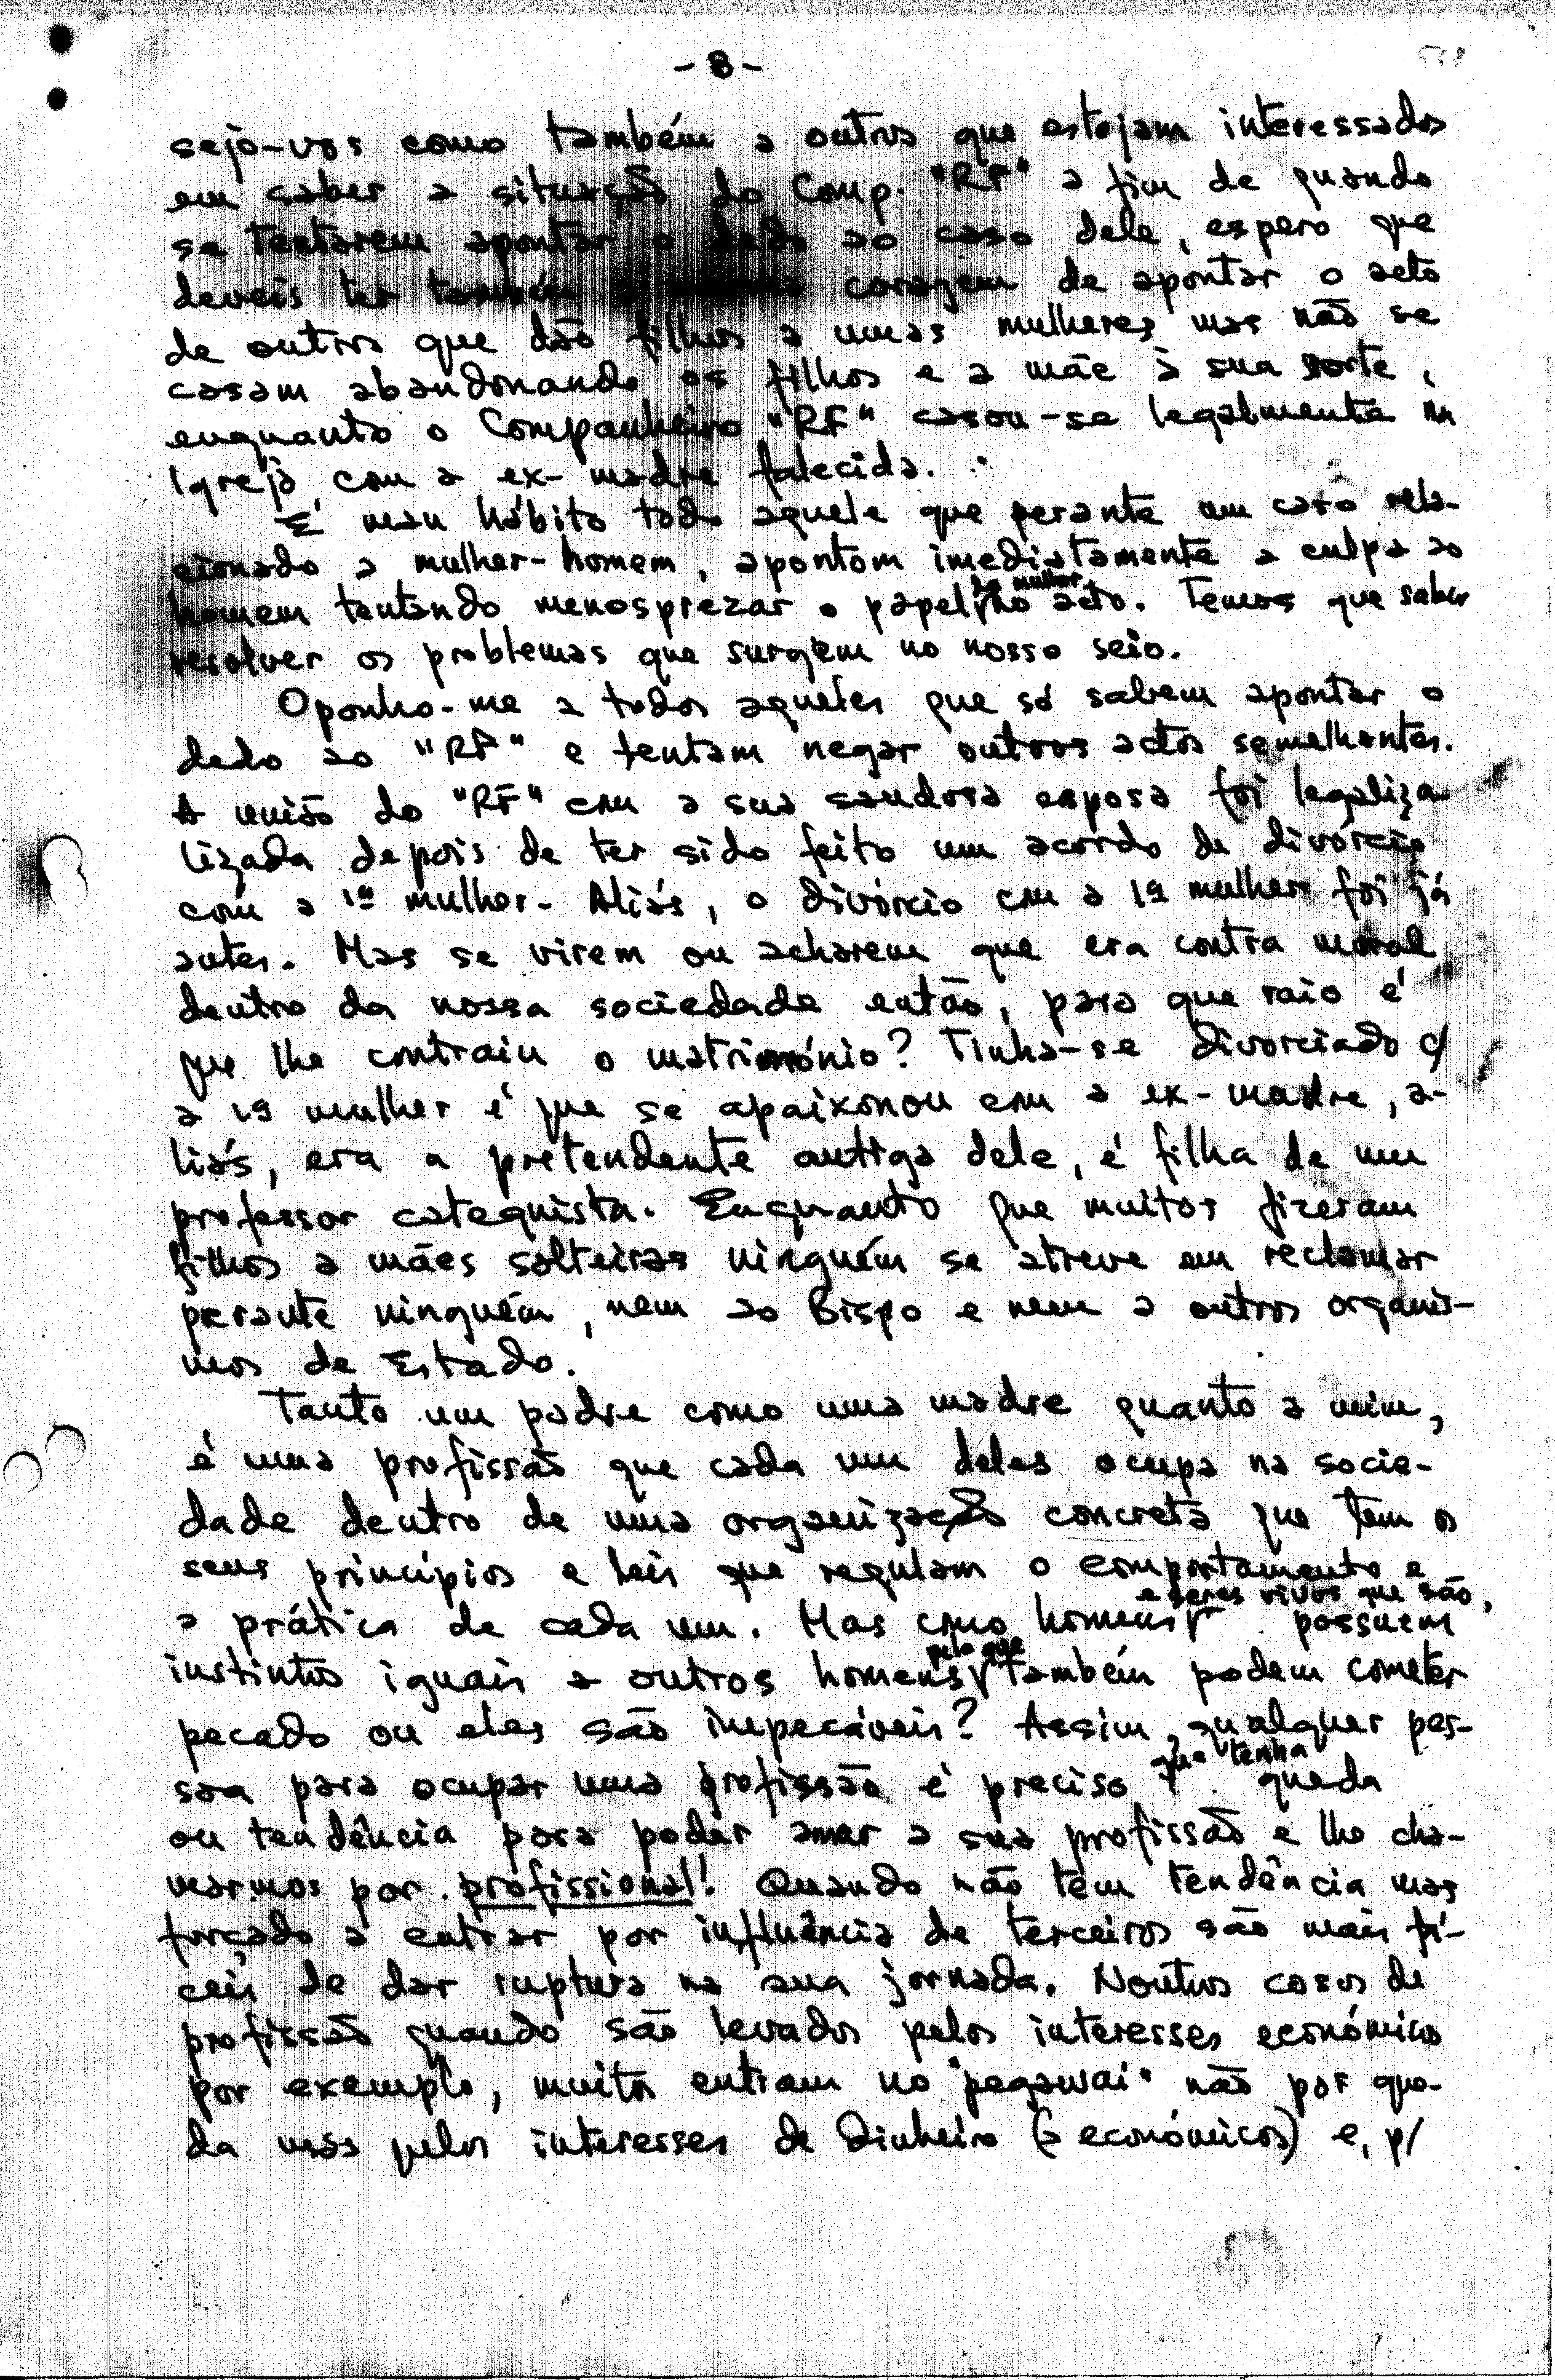 - 8 -
sejo-vos como também a outros que estejam interessados
em saber a situação do Comp. "RF" a fim de quando
se tentarem apontar o dedo ao caso dele, espero que
deveis ter também a coragem de apontar o acto
de outros que dão filhos a umas mulheres mas não se
casam abandonando os filhos e a mãe à sua sorte,
enquanto o Companheiro "RF" casou-se legalmente na
Igreja com a ex-madre falecida.
É mau hábito todo aquele que perante um caso rela-
cionado a mulher-homem, apontam imediatamente a culpa ao
homem tentando menosprezar o papel da mulher no acto. Temos que saber
resolver os problemas que surgem no nosso seio.
Oponho-me a todos aqueles que só sabem apontar o
dedo ao "RF" e tentam negar outros actos semelhantes.
A união do "RF" com a sua saudosa esposa foi legaliza-
lizada depois de ter sido feito um acordo de divórcio
com a 1ª mulher. Aliás, o divórcio com a 1ª mulher foi já
antes. Mas se virem ou acharem que era contra moral
dentro da nossa sociedade então, para que raio é
que lhe contraiu o matrimónio? Tinha-se divorciado c/
a 1ª mulher é que se apaixonou com a ex-madre, a-
liás, era a pretendente antiga dele, é filha de um
professor catequista. Enquanto que muitos fizeram
filhos a mães solteiras ninguém se atreve em reclamar
perante ninguém, nem ao Bispo e nem a outros organis-
mos de Estado.
Tanto um padre como uma madre quanto a mim,
é uma profissão que cada um deles ocupa na socie-
dade dentro de uma organização concreta que tem os
seus princípios e leis que regulam o comportamento e
a prática de cada um. Mas como homens e seres vivos que são, possuem
instintos iguais a outros homens pelo que também podem cometer
pecado ou eles são impecáveis? Assim, qualquer pes-
soa para ocupar uma profissão é preciso que tenha queda
ou tendência para poder amar a sua profissão e lho cha-
marmos por profissional! Quando não tem tendência mas
forçado a entrar por influência de terceiros são mais fá-
ceis de dar ruptura na sua jornada. Noutros casos de
profissão quando são levados pelos interesses económicos
por exemplo, muitos entram no "pegawai" não por que-
da mas pelos interesses de Dinheiro (= económicos) e, p/